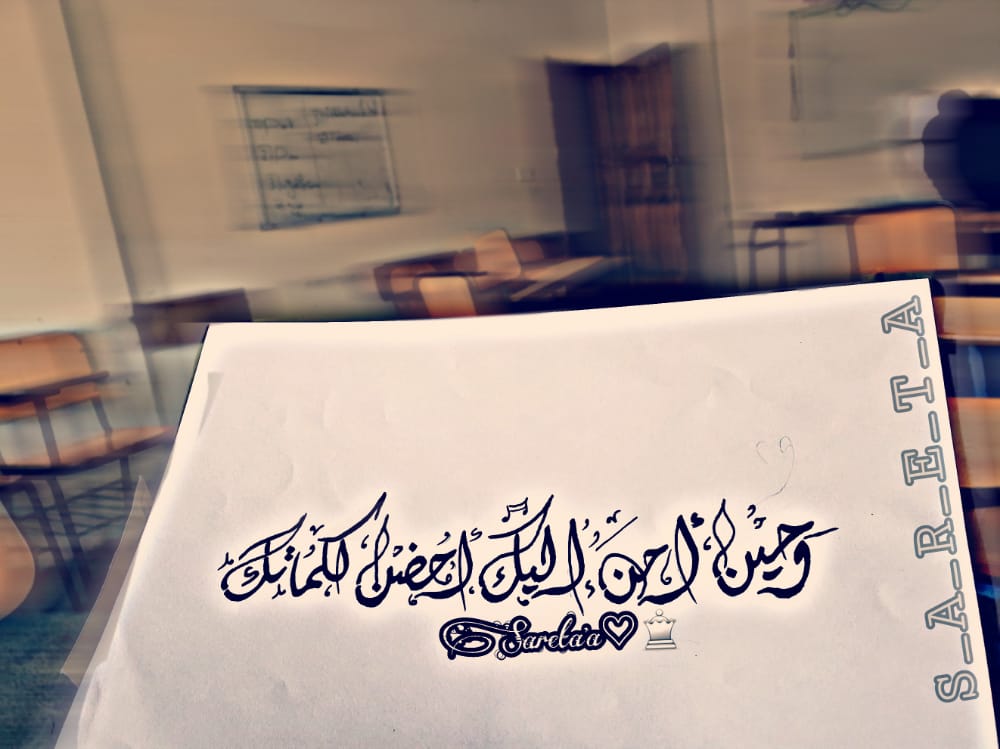 وَحين أحن إليك أحضن كلماتك
Sareta'a
S_A_R_E_T_A